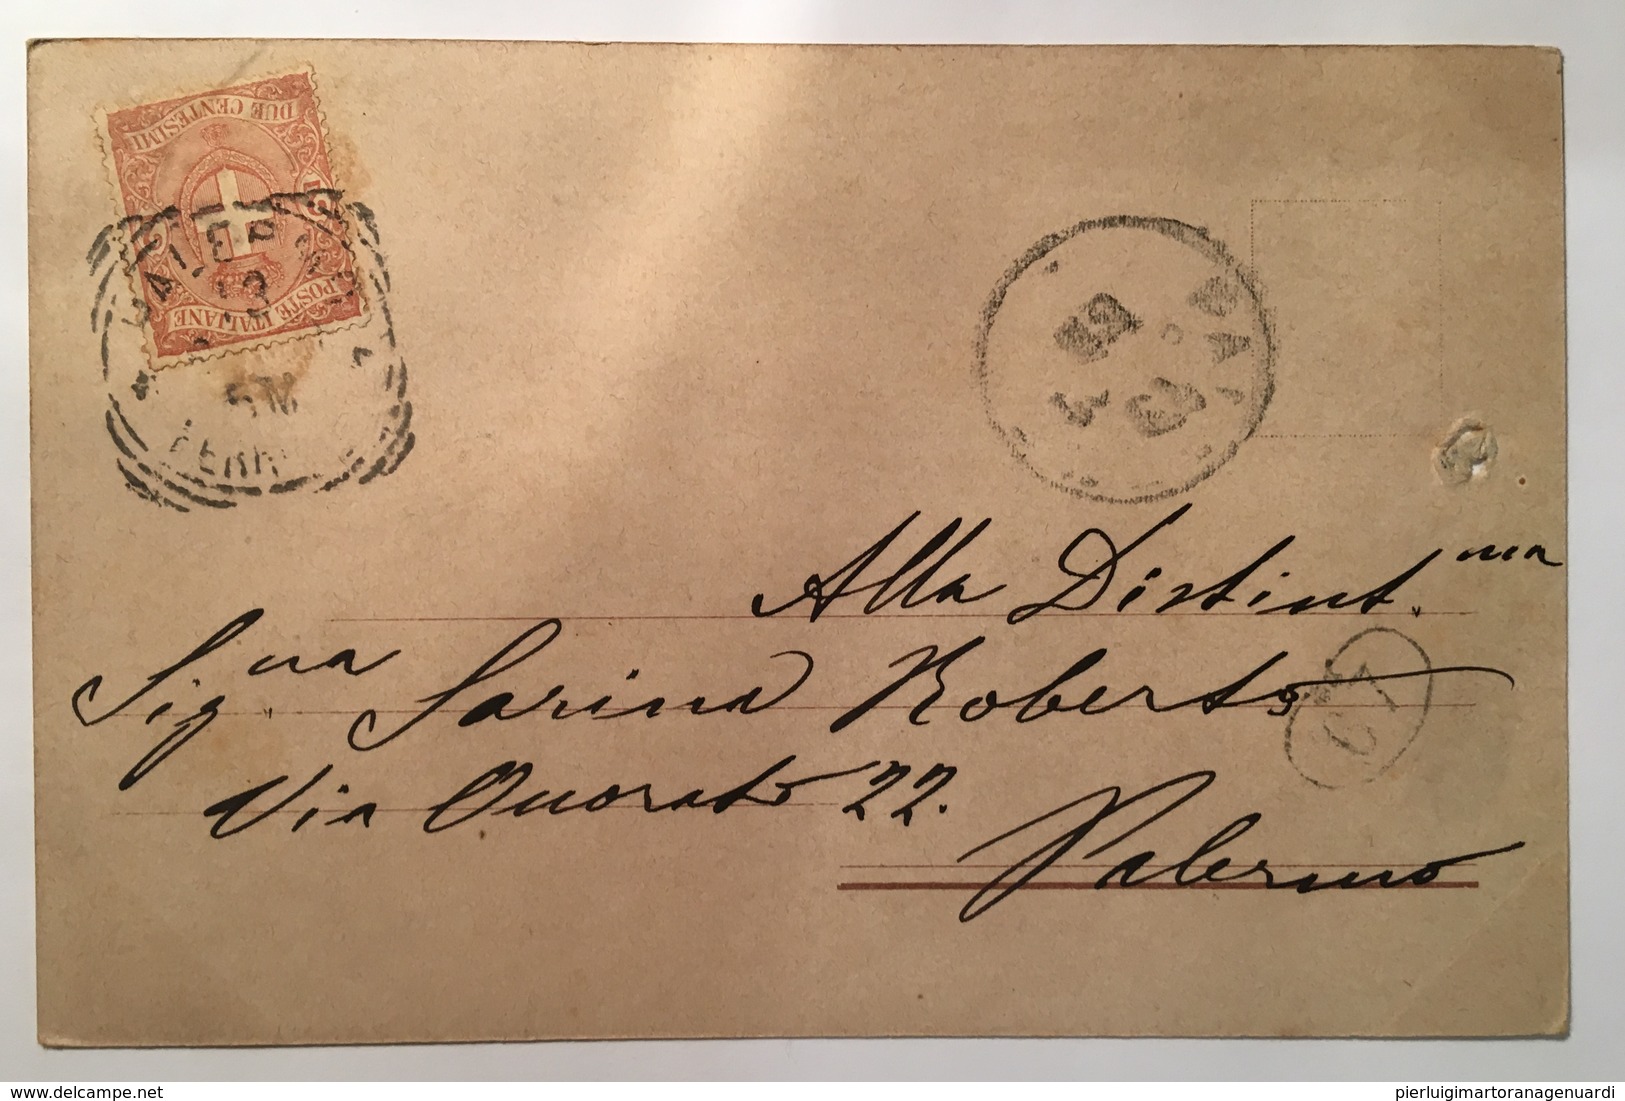 DUE CENTESIMI
POSTE ITALIANE
PALER
FERR
67
Alla Distint.ma
Sig.na Sarina Roberto
Via Onorato 22.
Palermo
delcampe.net
pierluigimartoranagenuardi